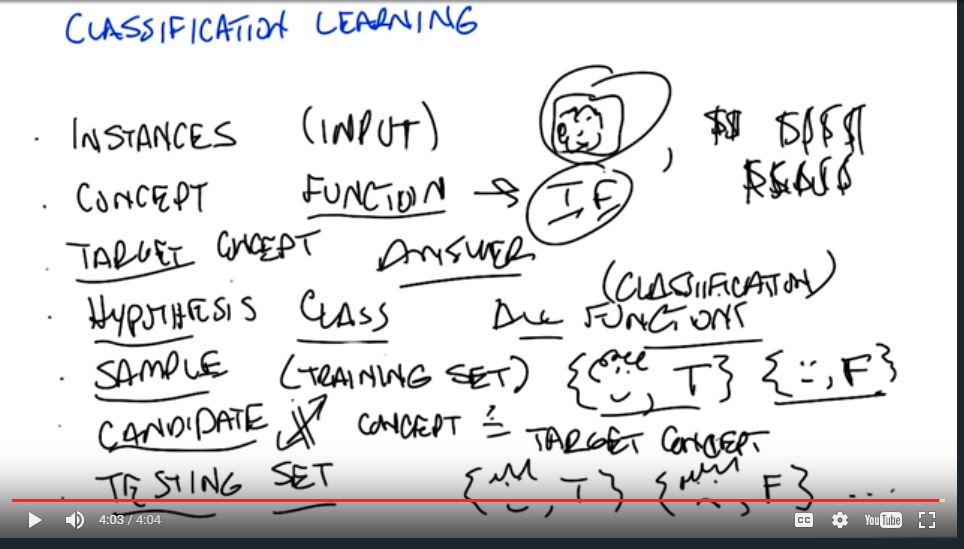 CLASSIFICATION LEARNING
· INSTANCES (INPUT) , $$ $$$$
$$$$$
· CONCEPT FUNCTION → T F
· TARGET CONCEPT ANSWER
(CLASSIFICATION)
· HYPOTHESIS CLASS ALL FUNCTIONS
· SAMPLE (TRAINING SET) { , T} { , F}
· CANDIDATE CONCEPT ?= TARGET CONCEPT
· TESTING SET { , T} { , F} ...
4:03 / 4:04 CC YouTube